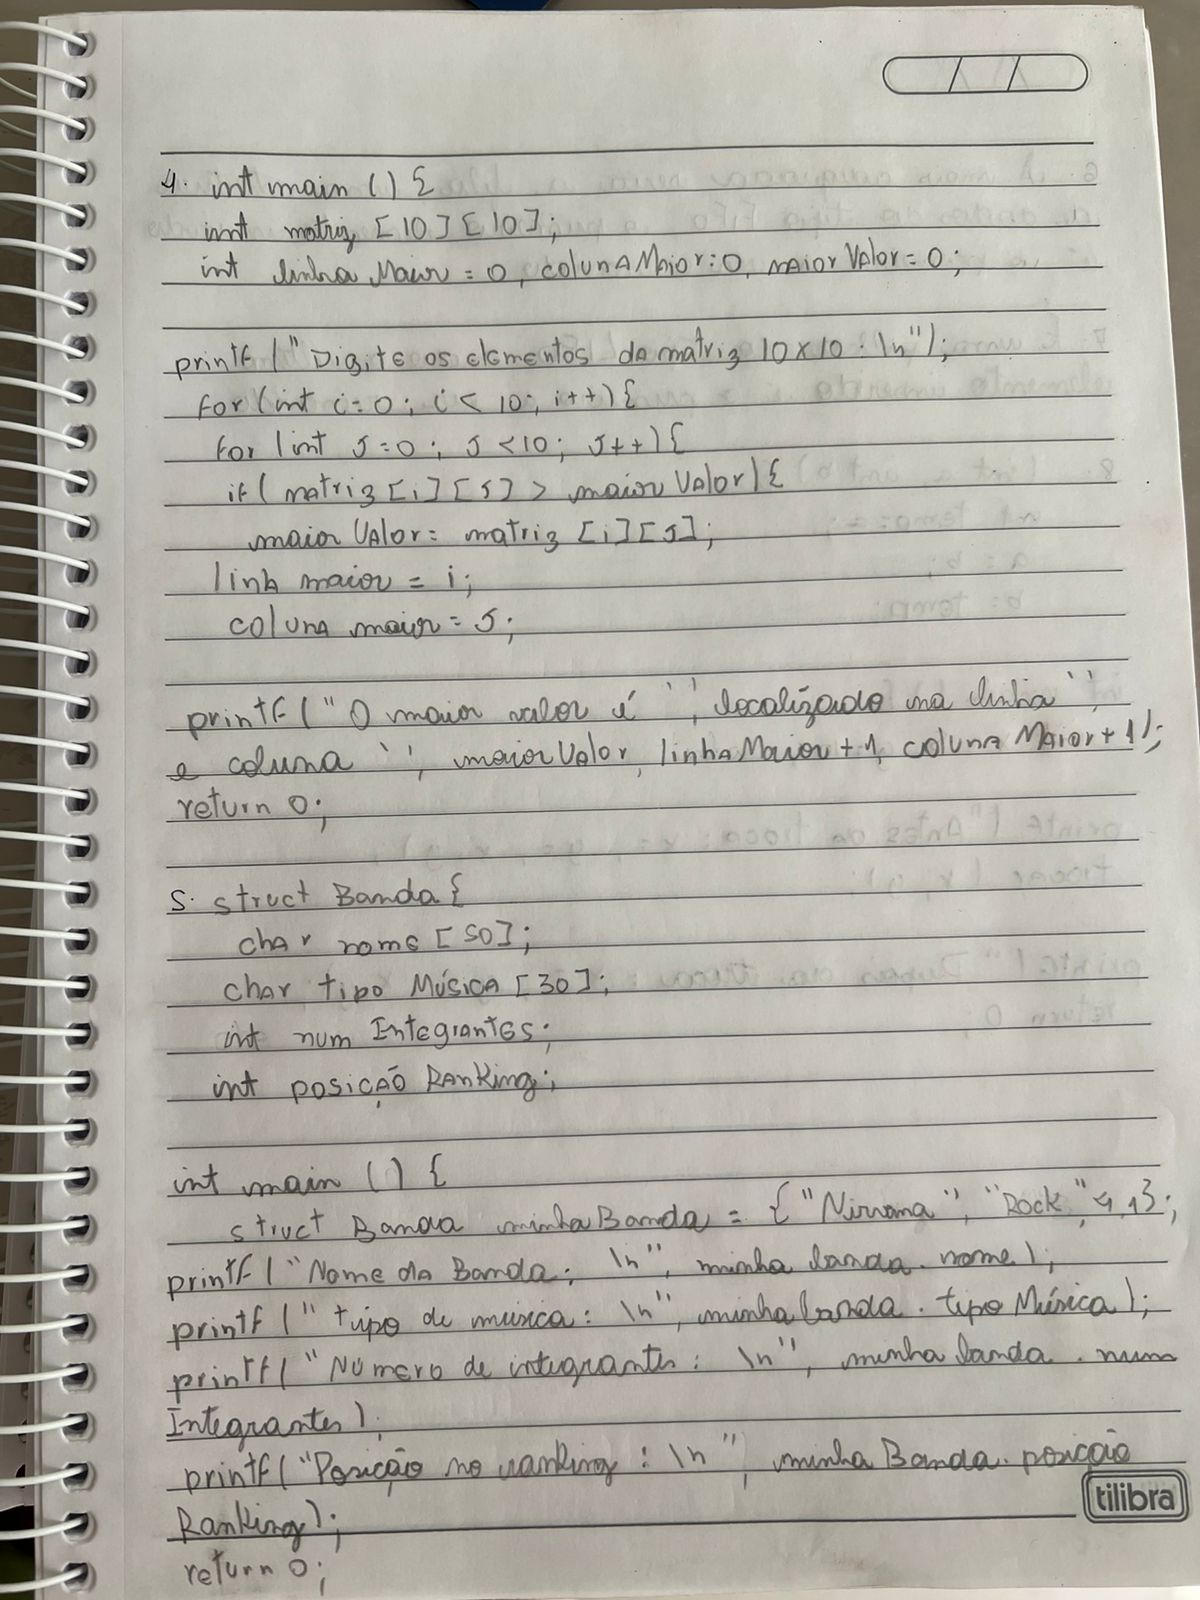 4. int main () {
int matriz [10][10];
int linha Maior = 0, colunA MAior: 0, mAior VAlor = 0;
printf ("Digite os elementos da matriz 10x10 . \n");
for (int i=0; i < 10; i++) {
for (int J=0; J <10; J++) {
if ( matriz [i][J] > maior VAlor) {
maior VAlor = matriz [i][J];
linhA maior = i;
colunA maior = J;
printf ("O maior valor é '', localizado na linha '',
e coluna '', maior Valor, linhA Maior + 1, colunA MAior + 1);
return 0;
5. struct Banda {
chAr nome [50];
chAr tipo MúsicA [30];
int num IntegrantEs;
int posiçÃo RAnKing;
int main () {
struct Banda minha Banda = { "Nirvana", "Rock", 4, 1};
printf ("Nome da Banda: \n", minha banda. nome);
printf (" tipo de musica: \n", minha banda. tipo Música);
printf ( "Número de integrantes: \n", minha banda . num
Integrantes);
printf ("Posição no ranking : \n", minha Banda. posição
Ranking);
return 0;
tilibra